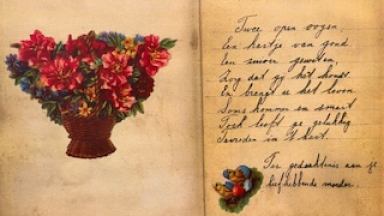 Twee open oogen
Een hartje van goud
Een zuiver geweten,
Zorg dat gij het houdt.
En brengt u het leven
Soms kommer en smart
Toch leeft ge gelukkig
Tevreden in 't hart.
Ter gedachtenis aan je
liefhebbende moeder.